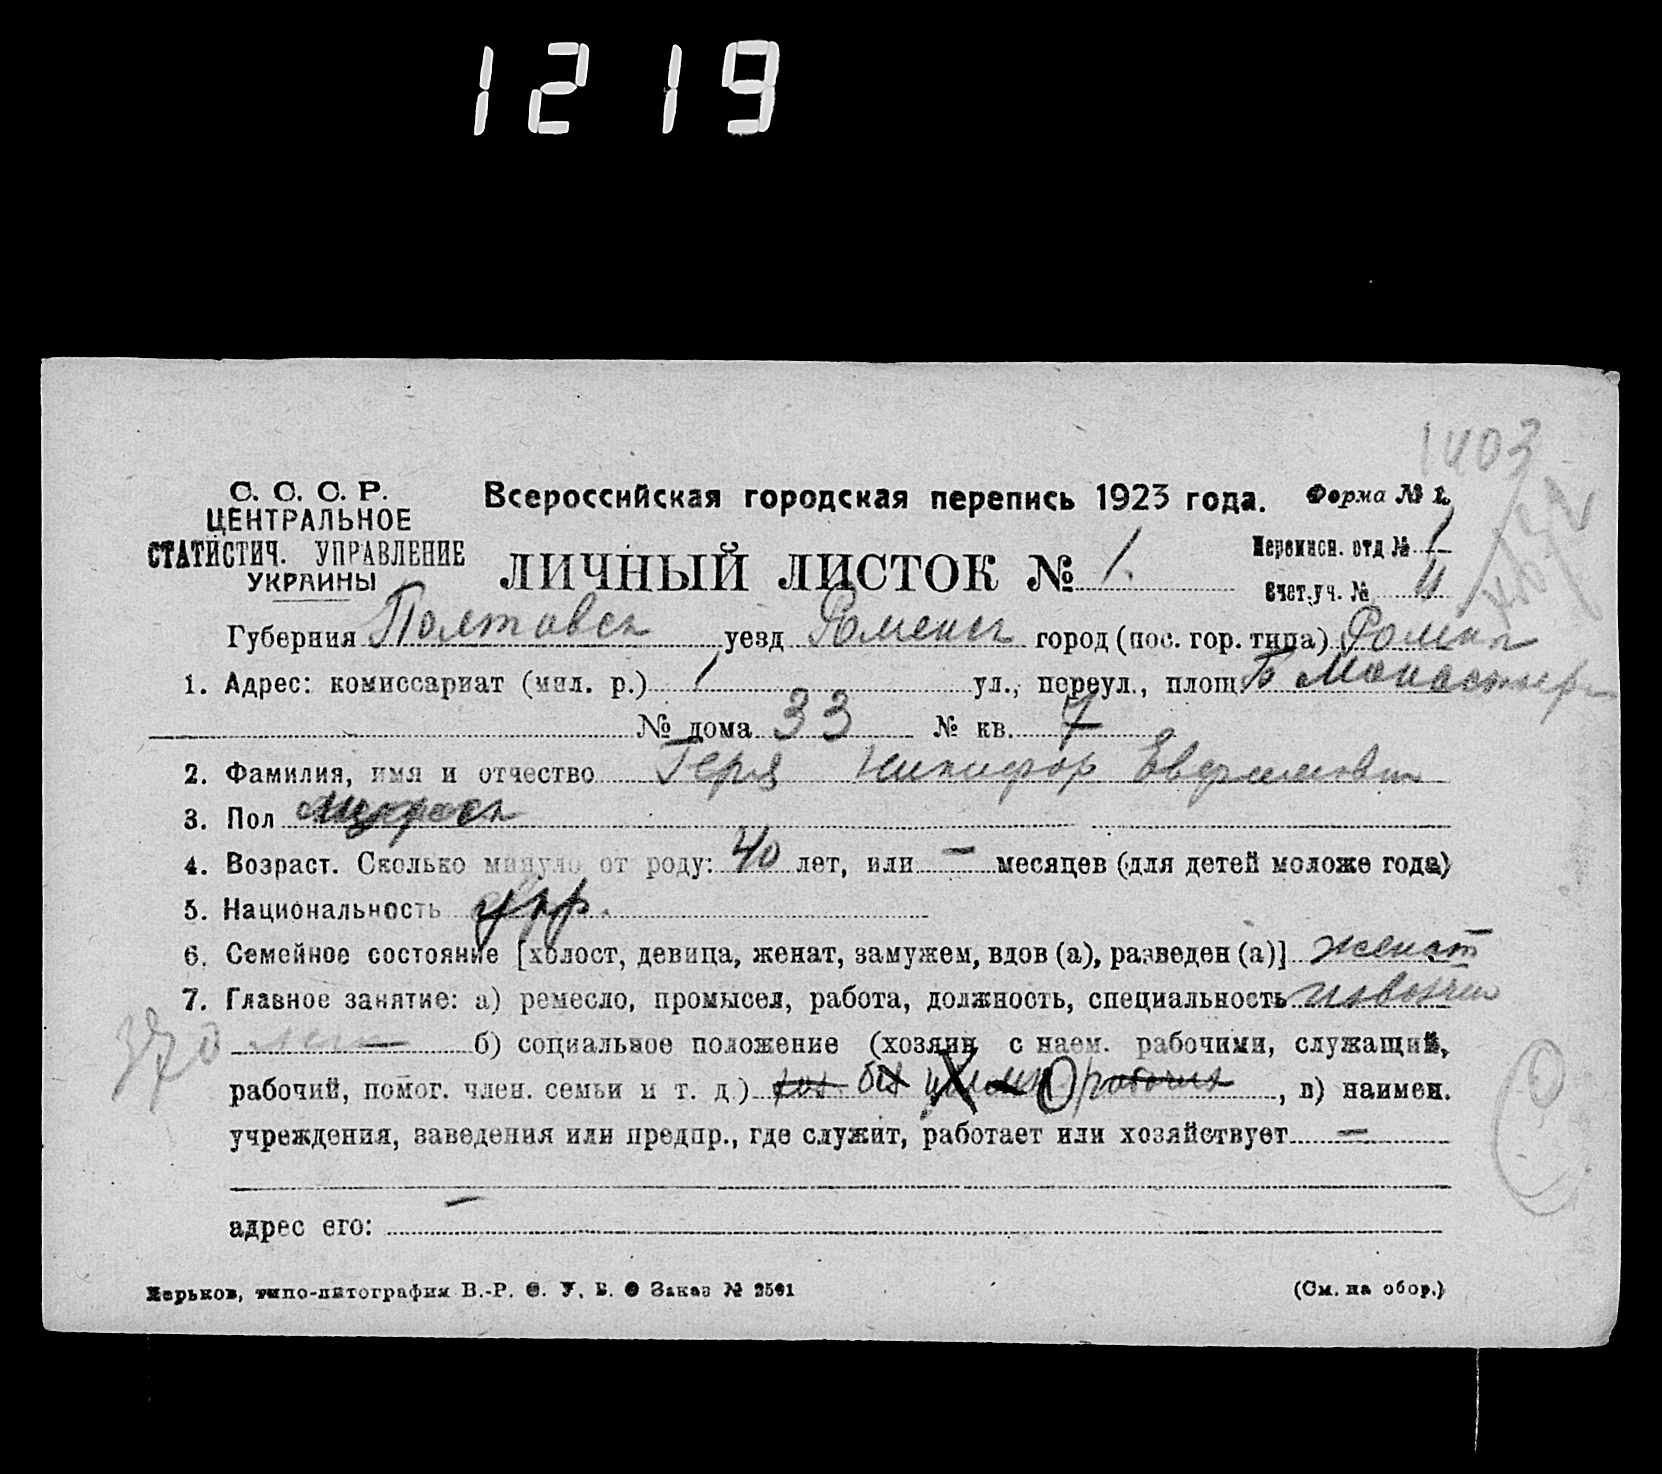 1219
1403
С. С. С. Р.
ЦЕНТРАЛЬНОЕ
СТАТИСТИЧ. УПРАВЛЕНИЕ
УКРАИНЫ
Всероссийская городская перепись 1923 года.
Форма № 1.
ЛИЧНЫЙ ЛИСТОК № 1.
Переписн. отд № 1
Счет. уч. № 11
Губерния Полтавск уезд Роменск город (пос. гор. типа) Ромны
1. Адрес: комиссариат (мил. р.) 1 ул., переул., площ. Б Монастыр
№ дома 33 № кв. 7
2. Фамилия, имя и отчество Геря Никифор
3. Пол мужеск
4. Возраст. Сколько минуло от роду: 40 лет, или — месяцев (для детей моложе года)
5. Национальность укр.
6. Семейное состояние [холост, девица, женат, замужем, вдов (а), разведен (а)] женат
7. Главное занятие: а) ремесло, промысел, работа, должность, специальность извозчик
370
б) социальное положение (хозяин с наем. рабочими, служащий,
рабочий, помог. член. семьи и т. д.) , в) наимен.
учреждения, заведения или предпр., где служит, работает или хозяйствует —
—
адрес его:
Харьков, типо-литография В.-Р. С. У. В. О Заказ № 2501
(См. на обор.)